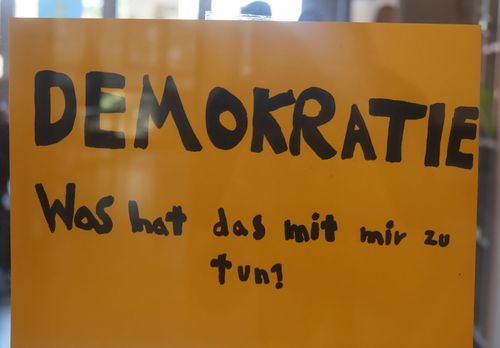 DEMOKRATIE
Was hat das mit mir zu
tun?